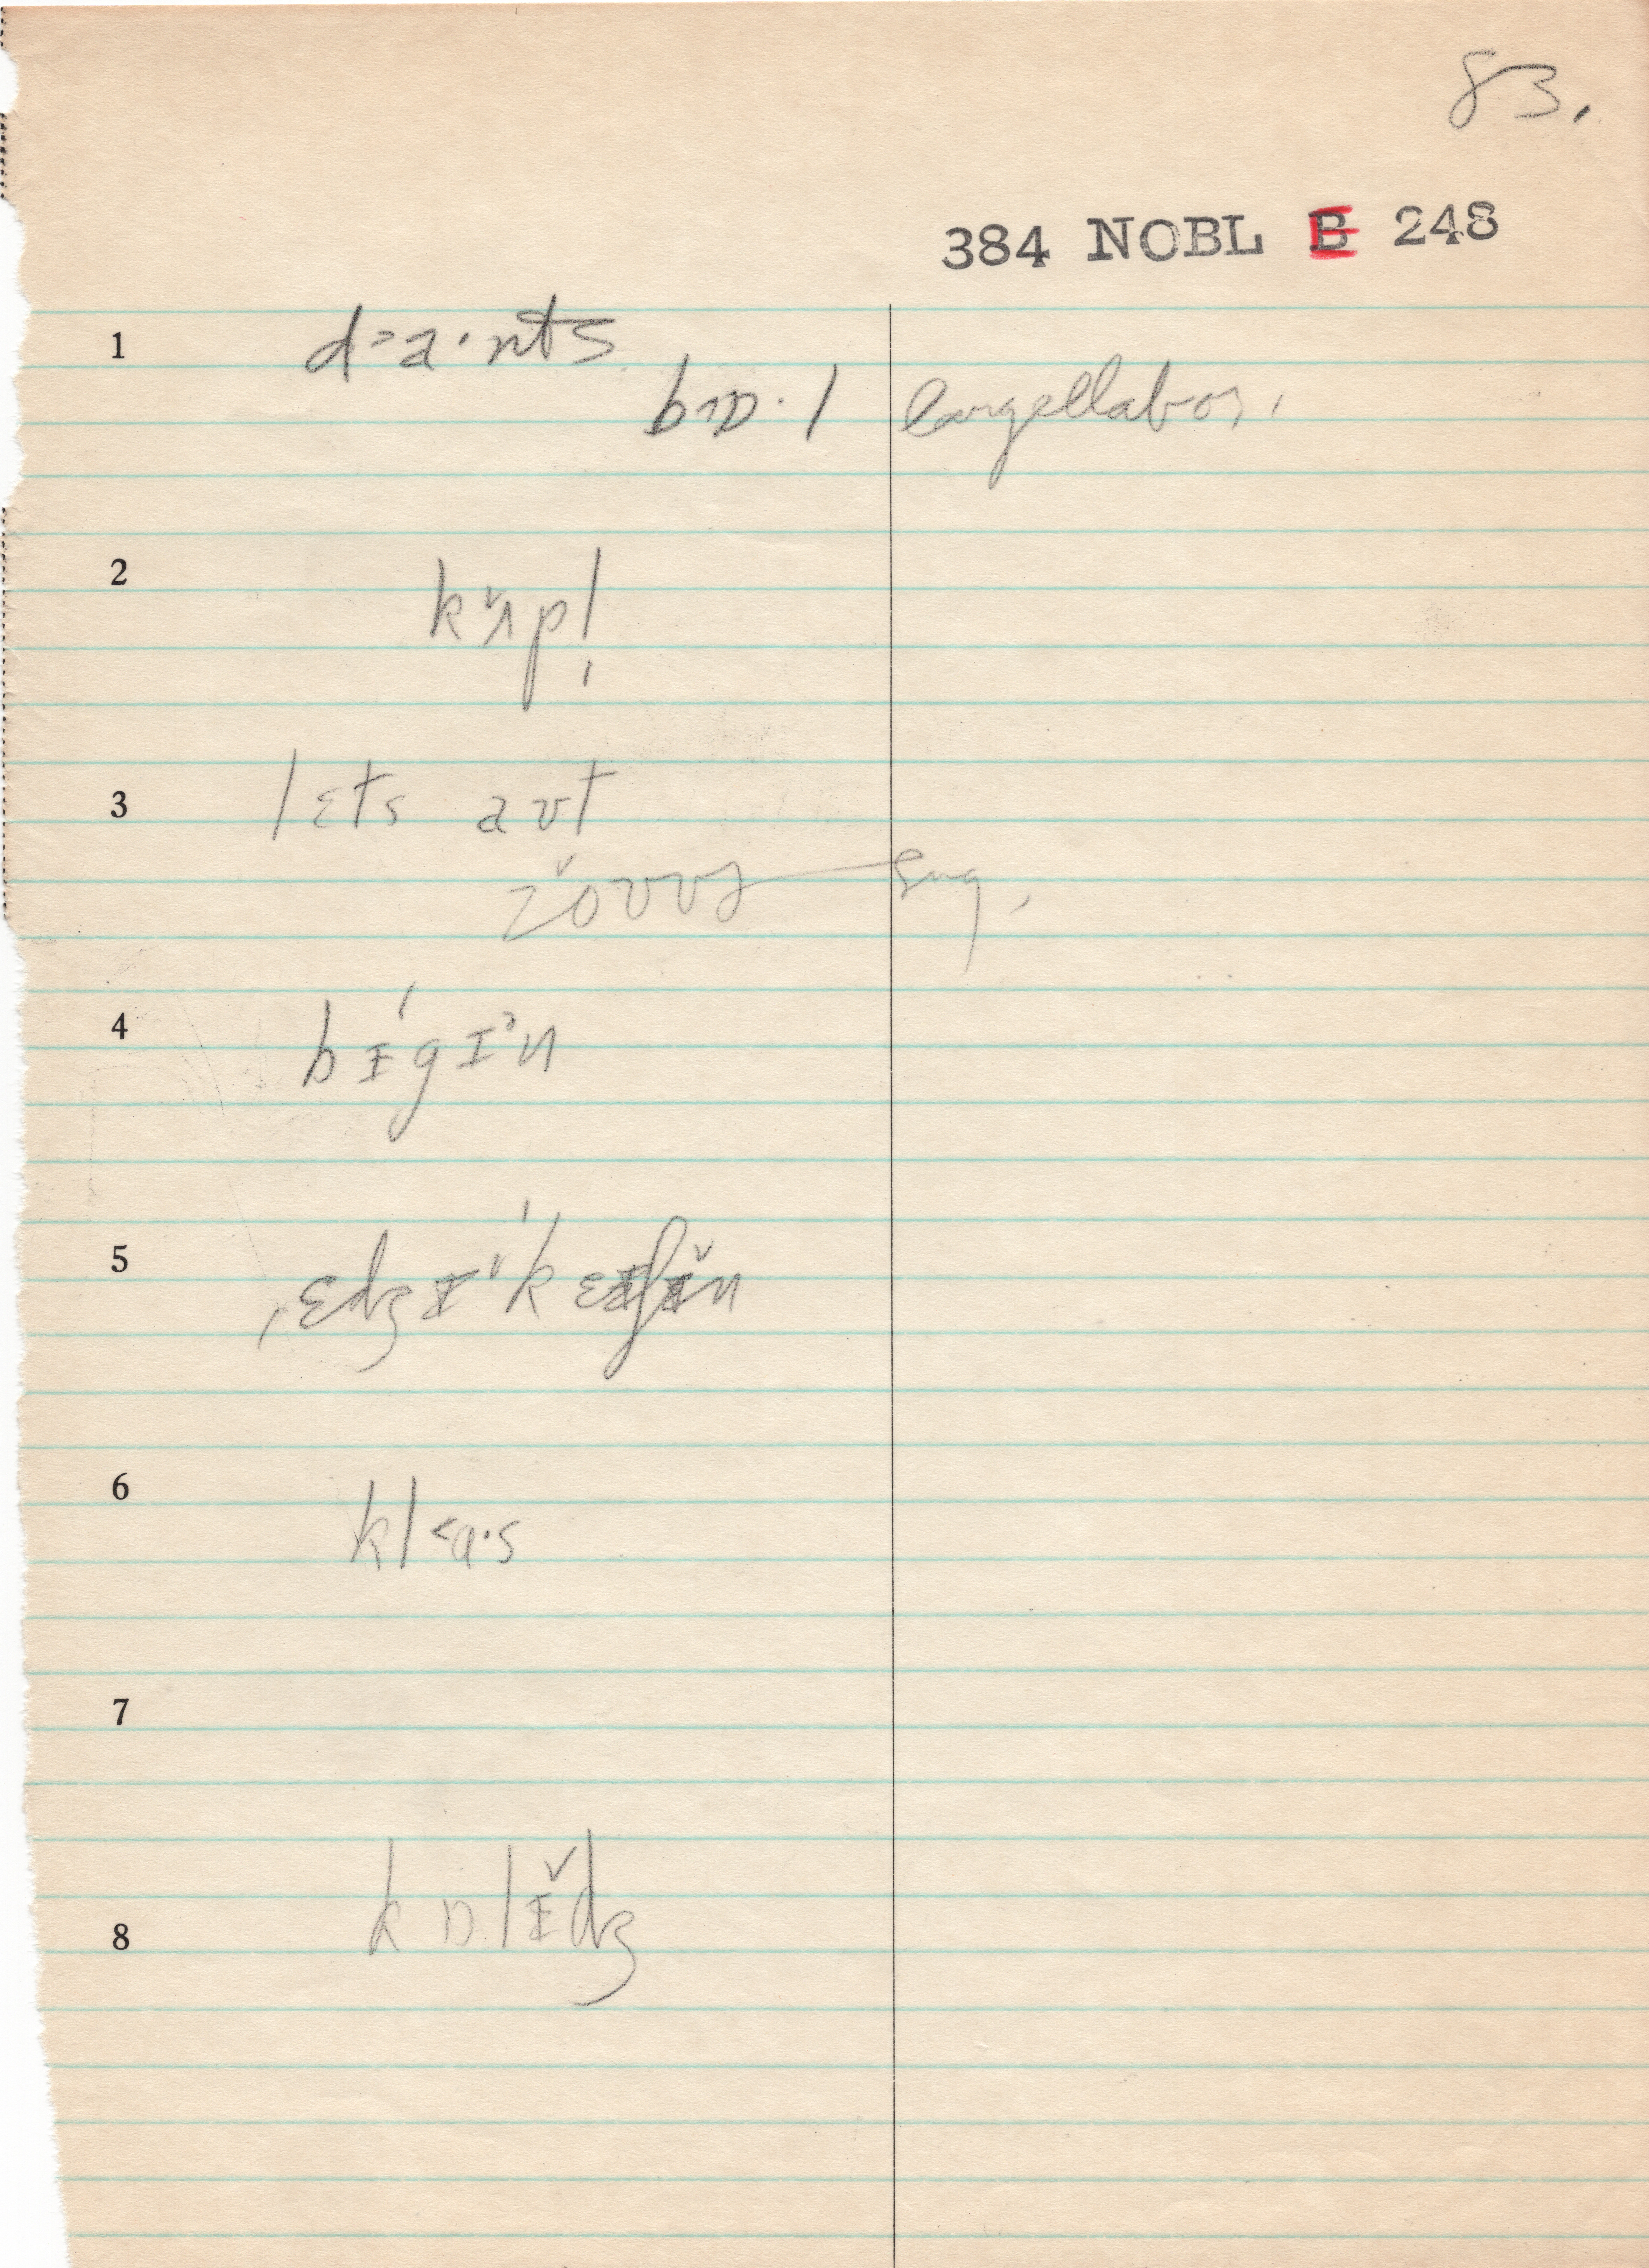 83.
384 NOBL E 248
1 d˃a·nts
b˄ɒ·l large & labor,
2 kʌ̆pl̩
3 lɛts aʊt
Eng,
4 bɪ́gɪ˃n
5 ˌɛdʒɪˈkeɪʃɪ̆n
6 kl˂a·s
7
8 kɒlɪ̆dʒ